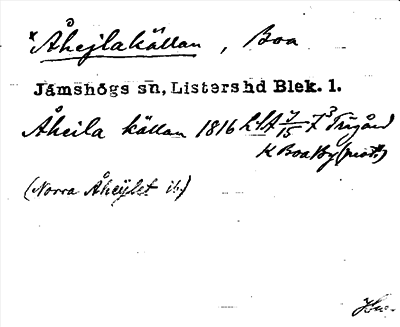 *Åhejlakällan, Boa
Jämshögs sn, Listershd Blek. l.
Åheila källan 1816 LSA 7/15 f 3 Trägård
K Boa By
(Norra Åhejlet ib.)